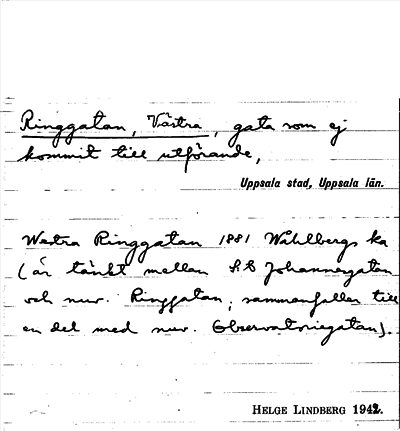 Ringgatan, Västra, gata som ej
kommit till utförande,
Uppsala stad, Uppsala län.
Westra Ringgatan 1881 Wahlbergs ka
(är tänkt mellan S:t Johannesgatan
och nuv. Ringgatan; sammanfaller till
en del med nuv. Observatoriegatan).
HELGE LINDBERG 1942.